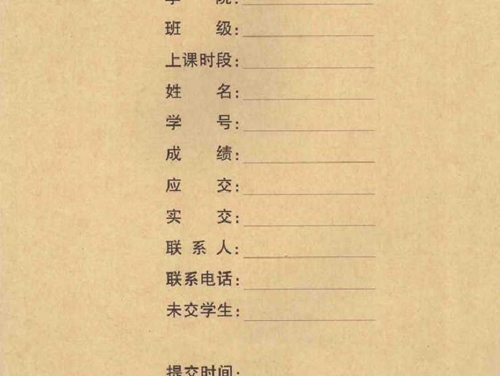 学 院:
班 级:
上课时段:
姓 名:
学 号:
成 绩:
应 交:
实 交:
联 系 人:
联系电话:
未交学生:
提交时间: